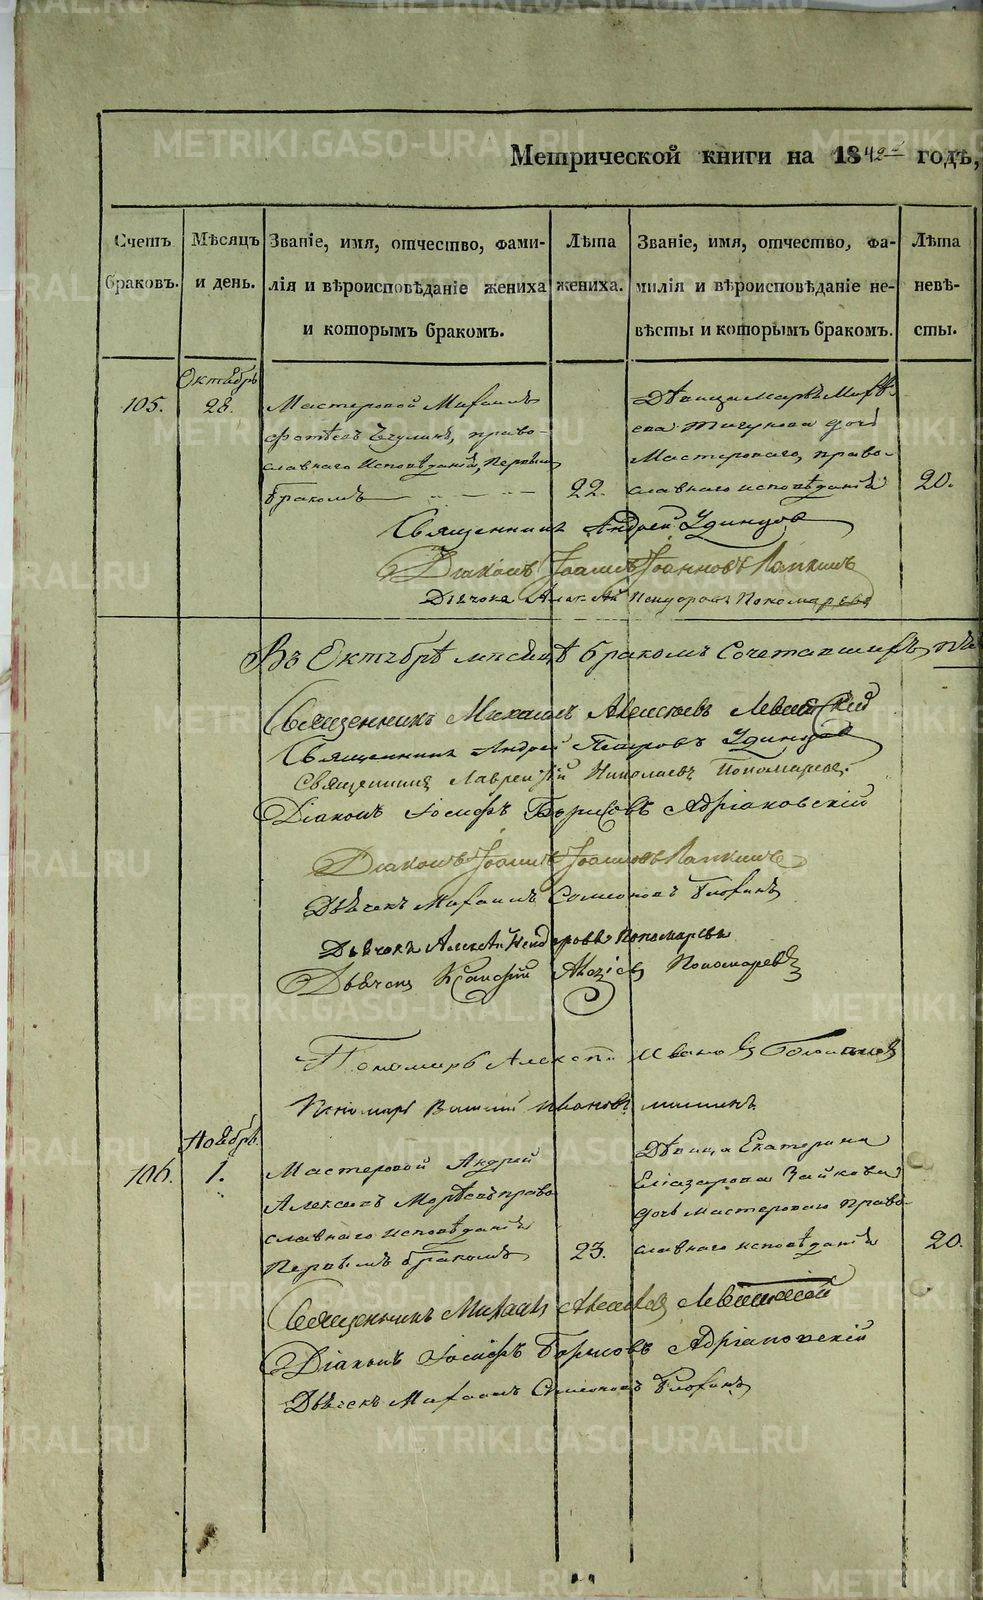 Метрической книги на 1842й годъ,
Счетъ браковъ.
Мѣсяцъ и день.
Званіе, имя, отчество, фами-
лія и вѣроисповѣданіе жениха
и которымъ бракомъ.
Лѣта жениха.
Званіе, имя, отчество, фа-
милія и вѣроисповѣданіе не-
вѣсты и которымъ бракомъ.
Лѣта невѣ-
сты.
Октябрь
105.
28.
Мастеровой Михаилъ
право-
славнаго исповѣданія, первым
бракомъ
22.
Дѣвица
дочь
Мастероваго, право-
славнаго исповѣданія
20.
Священникъ Андрей Удинцов
Діаконъ Іоаннъ Іоанновъ Лапкинъ
Дьячокъ Пономаревъ
Въ Октябрѣ месяцѣ бракомъ Сочетавшихъ
Священникъ Михаилъ Алексѣевъ Левитскій
Священникъ Андрей Петровъ Удинцов
Священникъ Лаврентій Николаевъ Пономарев.
Діаконъ Іосифъ Борисовъ Адріановскій
Діаконъ Іоаннъ Іоанновъ Лапкинъ
Дьячекъ Михаилъ Симеоновъ
Дьячокъ Пономаревъ
Дьячекъ Пономаревъ
Пономарь Алексѣй Иванов
Пономарь Василий Иванов
Ноябрь.
106.
1.
Мастеровой Андрей
право-
славнаго исповѣданія
Первымъ бракомъ
23.
Дѣвица Екатерина
Еліазарова Зайкова
дочь мастероваго право-
славнаго исповѣданія
20.
Священникъ Михаилъ Алексѣев Левитскій
Діаконъ Іосифъ Борисовъ Адріановскій
Дьячекъ Михаилъ Симеоновъ
METRIKI.GASO-URAL.RU